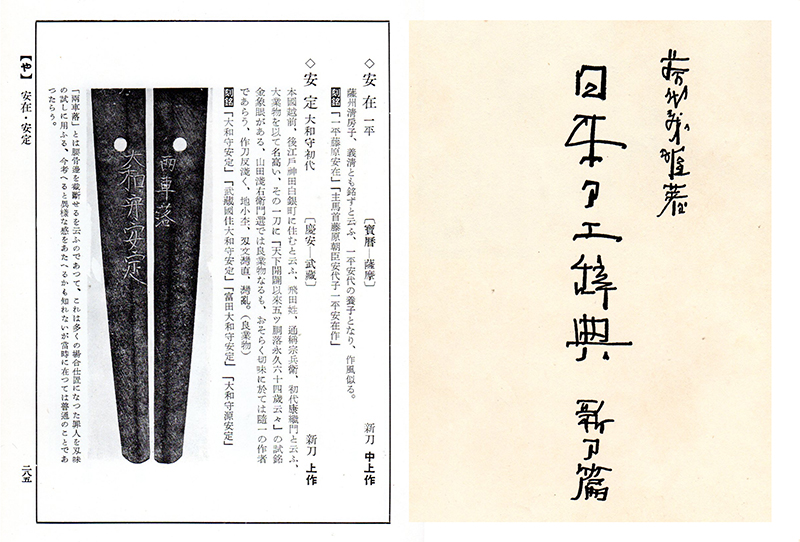 藤代義雄著
日本刀工辞典 新刀篇
◇安在 一平 [寶暦―薩摩] 新刀 中上作
薩州清房子、義清とも銘すと云ふ、一平安代の養子となり、作風似る。
刻銘「一平藤原安在」「主馬首藤原朝臣安代子一平安在作」
◇安定 大和守初代 [慶安―武藏] 新刀 上作
本國越前、後江戸神田白銀町に住むと云ふ、飛田姓、通稱宗兵衛、初代康繼門と云ふ、
大業物を以て名高い、その一刀に『天下開闢以來五ツ胴落永久六十四歳云々』の試銘
金象眼がある、山田淺右衛門選では良業物なるも、おそらく切味に於ては隨一の作者
であらう、作刀反淺く、地小杢、刄文灣直、灣亂。(良業物)
刻銘「大和守安定」「武藏國住大和守安定」「富田大和守安定」「大和守源安定」
兩車落
大和守安定
「兩車落」とは腰骨邊を截斷せるを云ふのであつて、これは多くの場合仕置になつた罪人を刄味
の試しに用ふる、今考へると異樣な感をあたへるかも知れないが當時に在つては普通のことであ
つたらう。
【や】 安在・安定
二八五